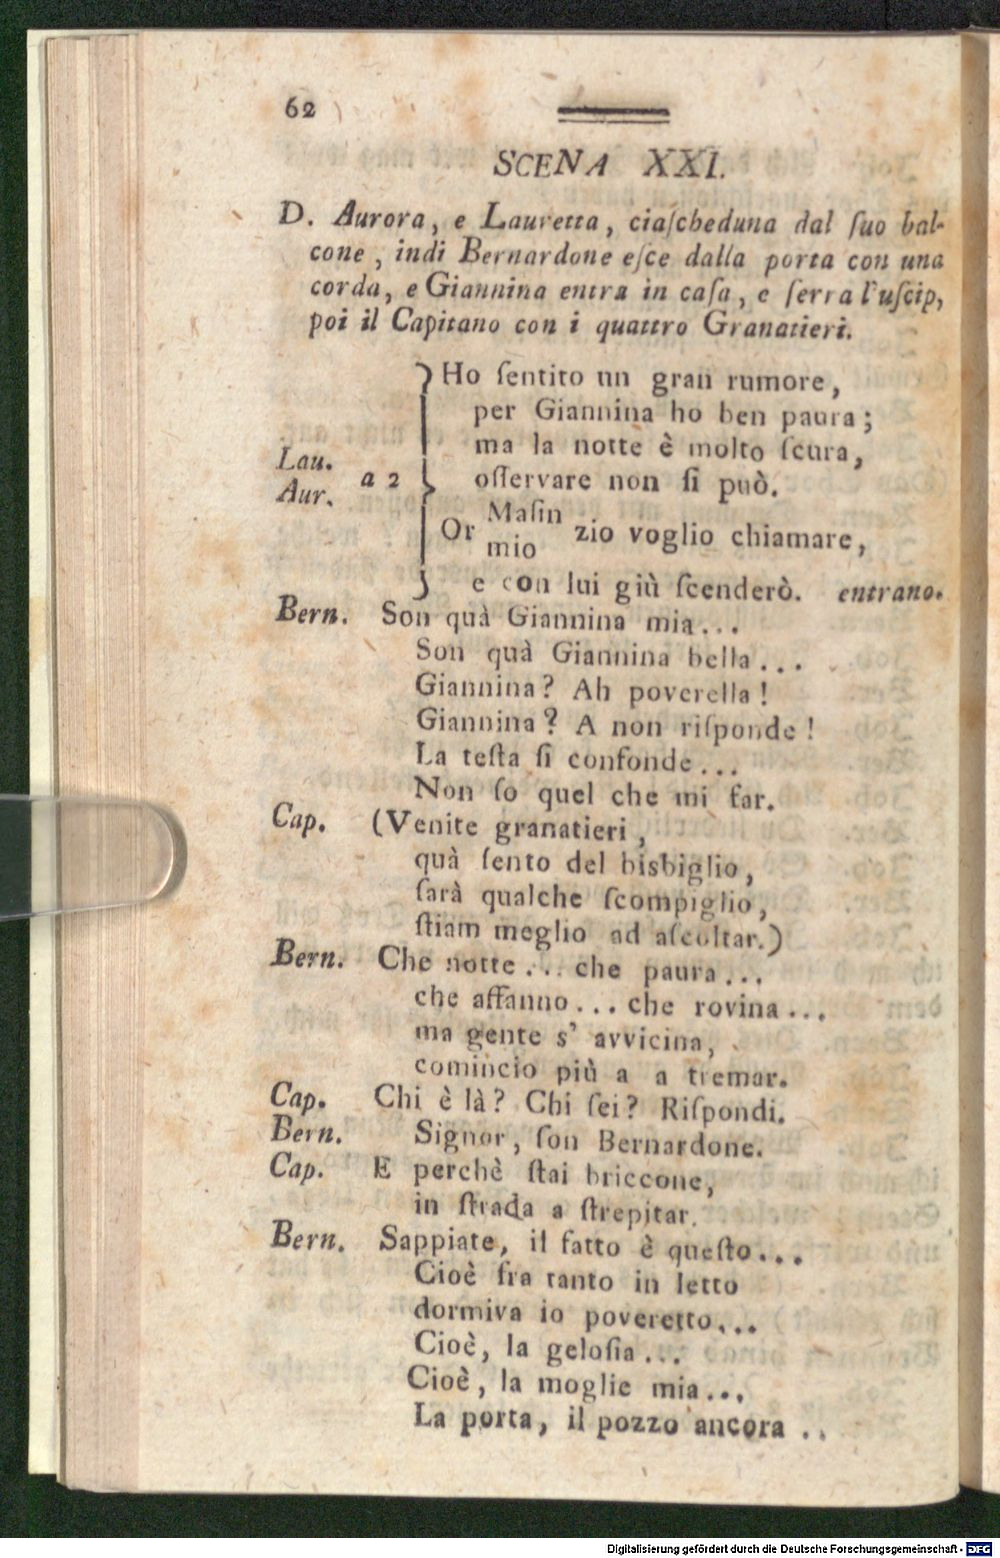 62
SCENA XXI.
D. Aurora, e Lauretta, ciaſcheduna dal ſuo bal-
cone, indi Bernardone eſce dalla porta con una
corda, e Giannina entra in caſa, e ſerra l'uſcip,
poi il Capitano con i quattro Granatieri.
Ho ſentito un gran rumore,
per Giannina ho ben paura;
ma la notte è molto ſcura,
Lau.
Aur. a 2 oſſervare non ſi può.
Or Maſin
mio zio voglio chiamare,
e con lui giù ſcenderò. entrano.
Bern. Son quà Giannina mia...
Son quà Giannina bella...
Giannina? Ah poverella!
Giannina? A non riſponde!
La teſta ſi confonde...
Non ſo quel che mi far.
Cap. (Venite granatieri,
quà ſento del bisbiglio,
ſarà qualche ſcompiglio,
ſtiam meglio ad aſcoltar.)
Bern. Che notte... che paura...
che affanno... che rovina...
ma gente s' avvicina,
comincio più a a tremar.
Cap. Chi è là? Chi ſei? Riſpondi.
Bern. Signor, ſon Bernardone.
Cap. E perchè ſtai briccone,
in ſtrada a ſtrepitar.
Bern. Sappiate, il fatto è queſto...
Cioè fra tanto in letto
dormiva io poveretto...
Cioè, la geloſia...
Cioè, la moglie mia...
La porta, il pozzo ancora ..
Digitalisierung gefördert durch die Deutsche Forschungsgemeinschaft - DFG